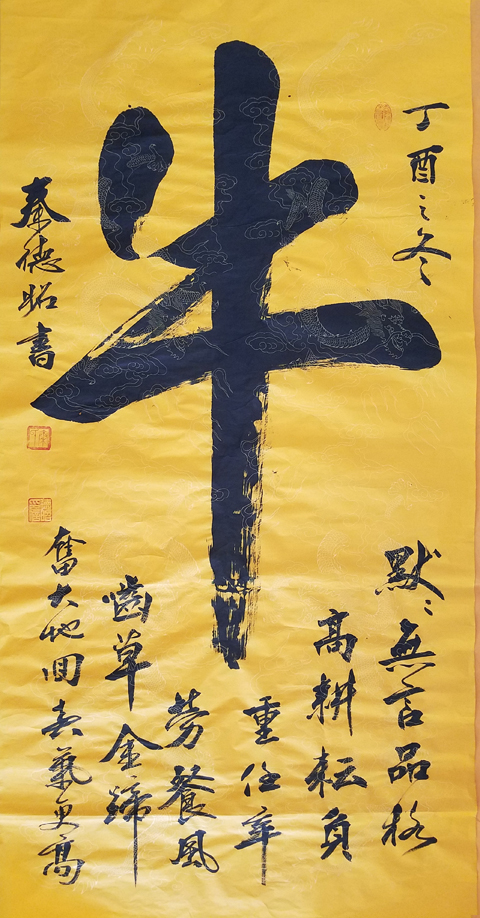 丁酉之冬
牛
默默無言品格
高耕耘負
重任辛
勞餐風
齒草金蹄
奮大地回春氣更高
秦德昭書